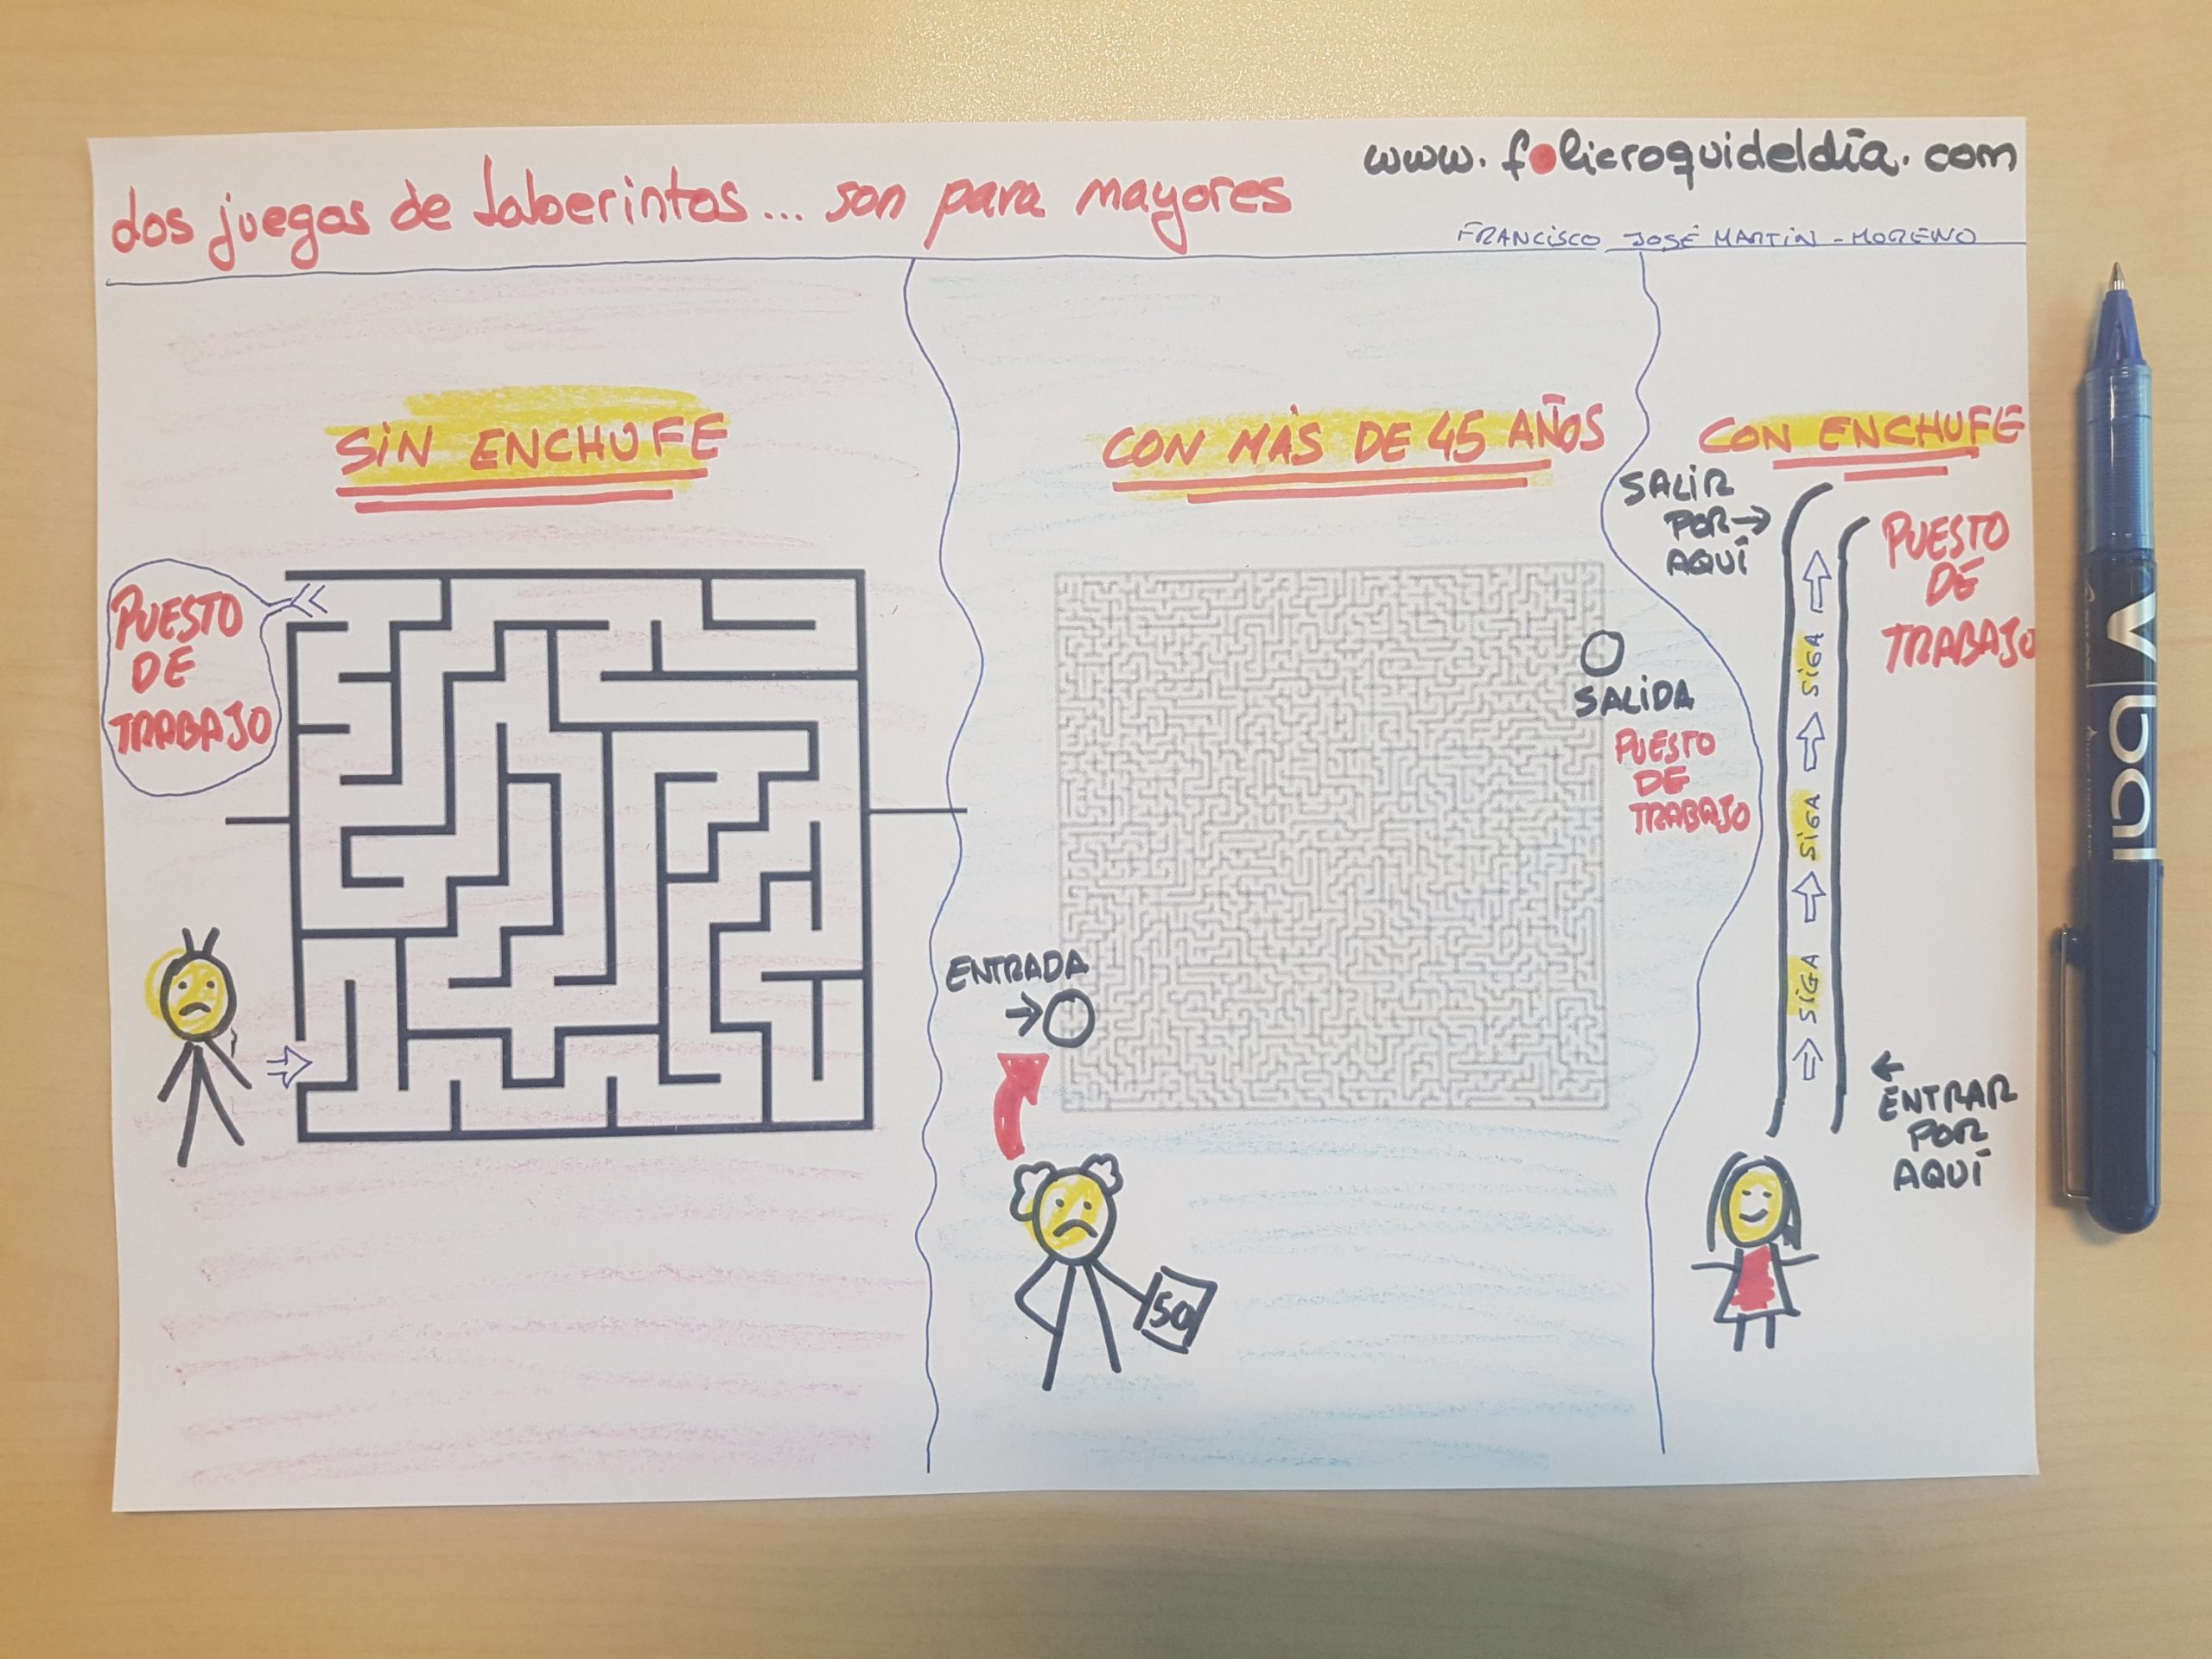 dos juegos de laberintos... son para mayores
www.folicroquideldía.com
FRANCISCO JOSÉ MARTIN-MORENO
SIN ENCHUFE
PUESTO
DE
TRABAJO
CON MÁS DE 45 AÑOS
ENTRADA
SALIDA
PUESTO
DE
TRABAJO
50
CON ENCHUFE
SALIR
POR
AQUÍ
PUESTO
DE
TRABAJO
SIGA
SIGA
SIGA
ENTRAR
POR
AQUÍ
V ball